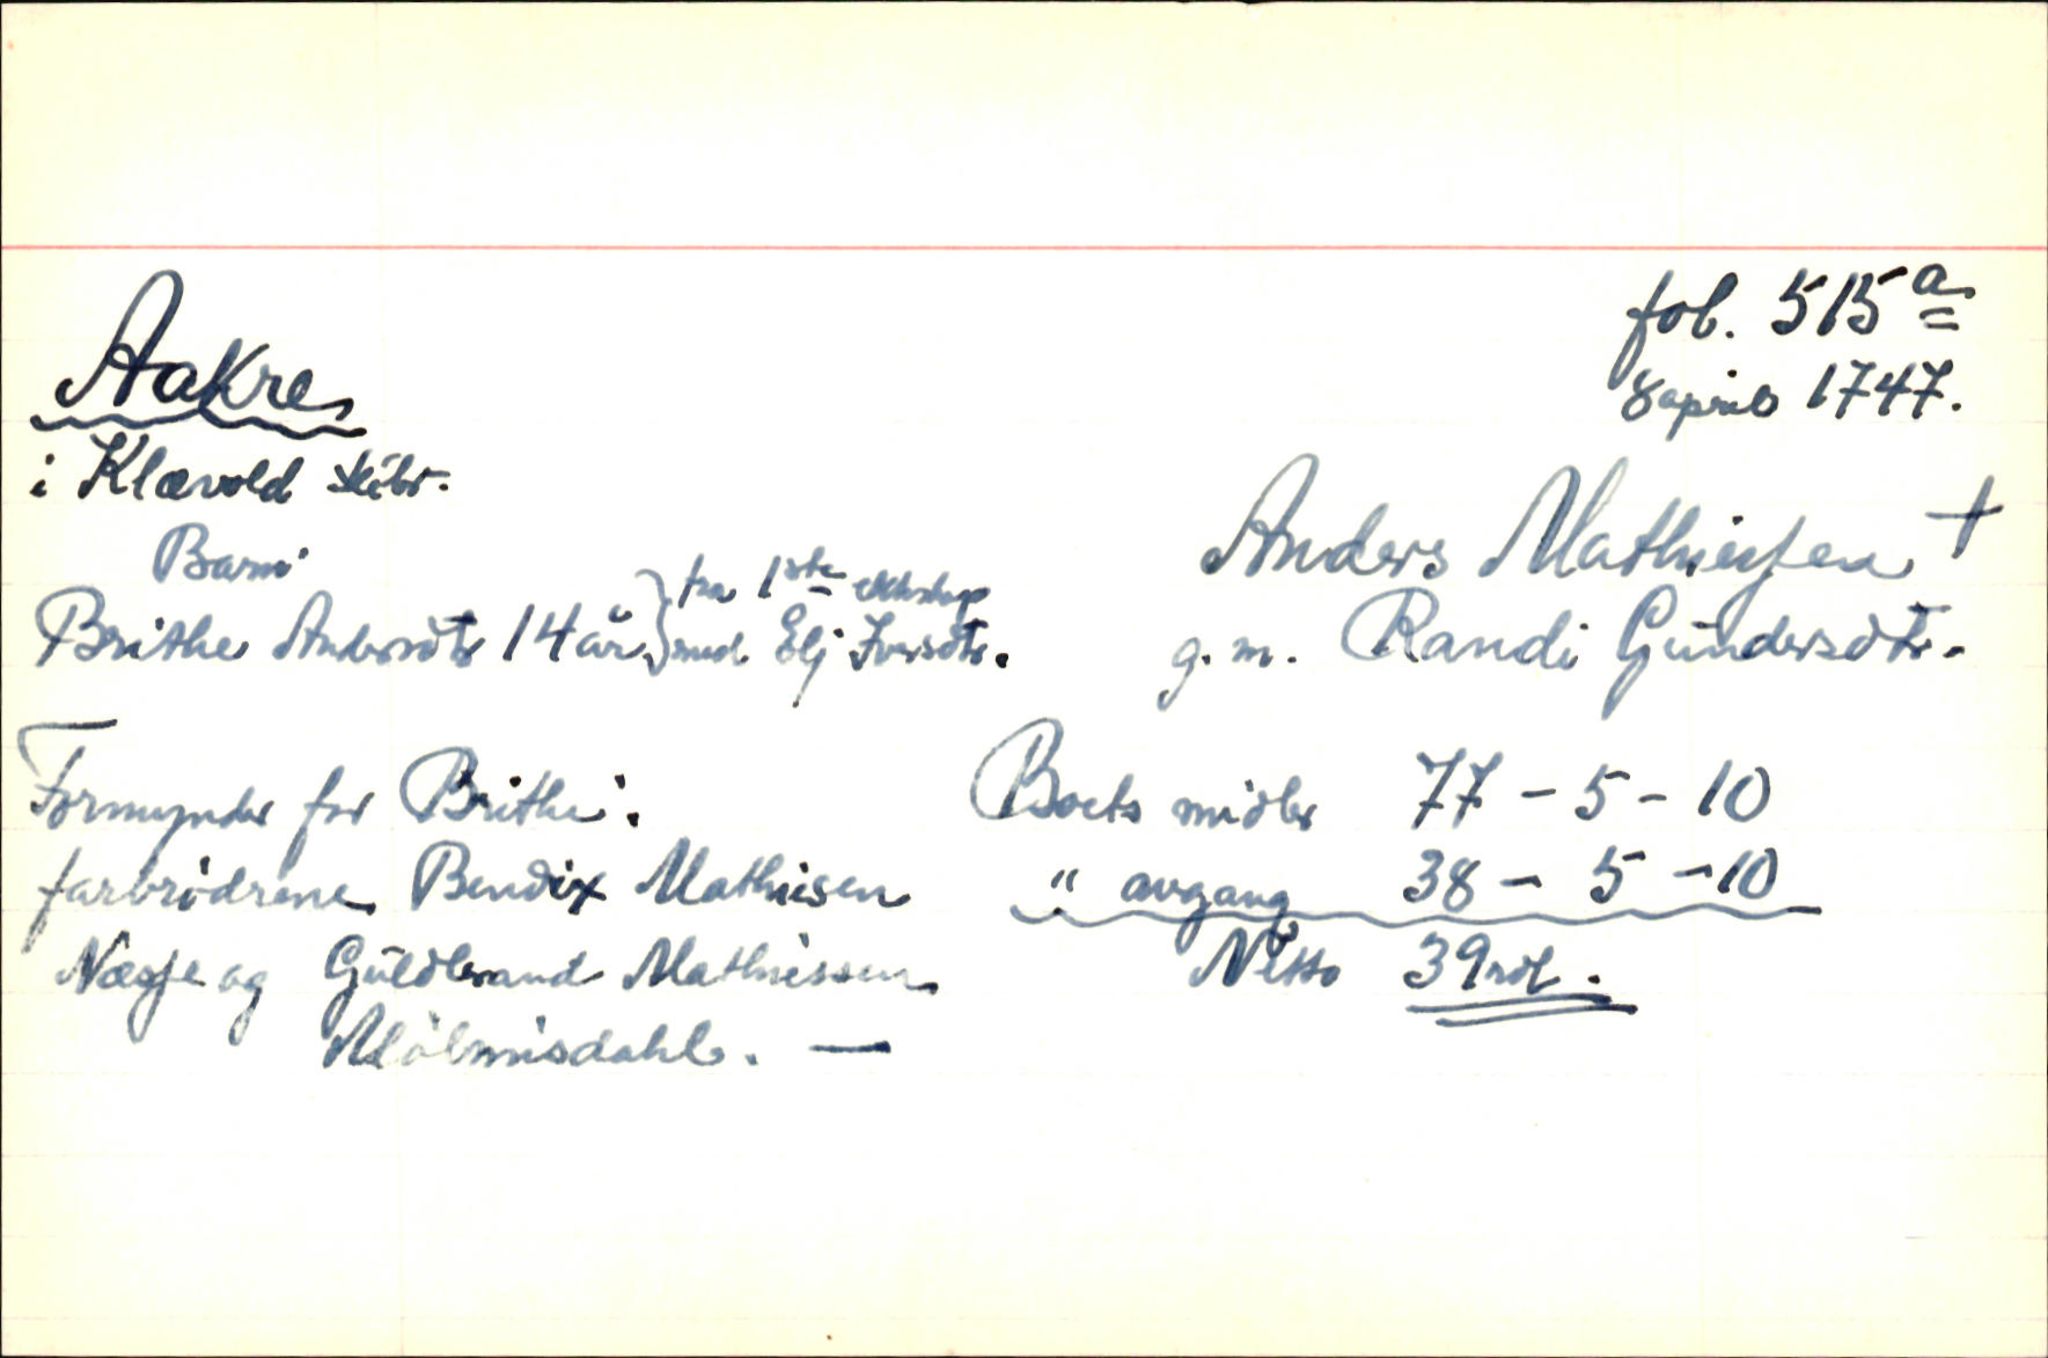 fol. 515 a
8 april 1747.
Aakre
i Klævold skibr.
Anders Mathiesen †
g. m. Randi Gundersdtr.
Barn:
Brithe Andersdtr 14 år } fra 1ste ekteskap
med Elj Iversdtr.
Formynder for Brithe:
farbrödrene Bendix Mathisen
Næsse og Guldbrand Mathissen
Mölmisdahl. —
Boets midler 77 - 5 - 10
" avgang 38 - 5 - 10
Netto 39 rdl.